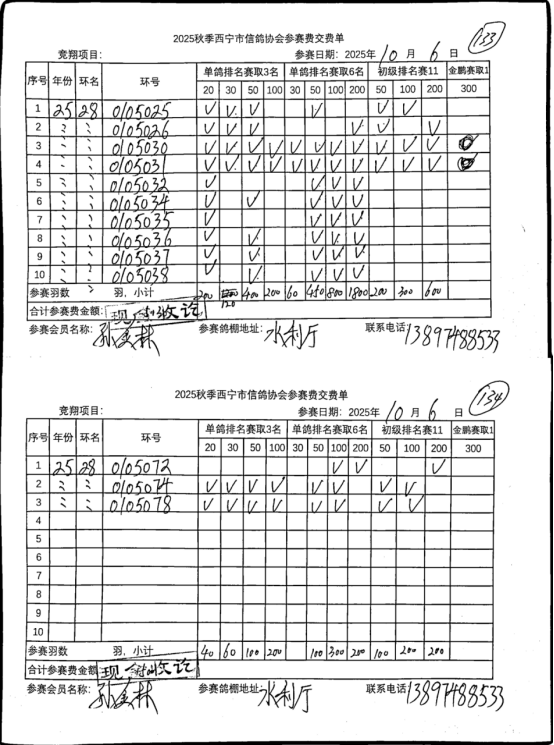 133
2025秋季西宁市信鸽协会参赛费交费单
竞翔项目： 参赛日期：2025年 10 月 6 日
序号 年份 环名 环号 单鸽排名赛取3名 单鸽排名赛取6名 初级排名赛11 金鹏赛取1
20 30 50 100 30 50 100 200 50 100 200 300
1 25 28 0105025 ✓ ✓ ✓ ✓ ✓ ✓
2 〃 〃 0105026 ✓ ✓ ✓ ✓ ✓ ✓
3 〃 〃 0105030 ✓ ✓ ✓ ✓ ✓ ✓ ✓ ✓ ✓ ✓ ✓
4 〃 〃 0105031 ✓ ✓ ✓ ✓ ✓ ✓ ✓ ✓ ✓ ✓ ✓
5 〃 〃 0105032 ✓ ✓ ✓ ✓
6 〃 〃 0105034 ✓ ✓ ✓ ✓ ✓
7 〃 〃 0105035 ✓ ✓ ✓ ✓
8 〃 〃 0105036 ✓ ✓ ✓ ✓ ✓
9 〃 〃 0105037 ✓ ✓ ✓ ✓ ✓
10 〃 〃 0105038 ✓ ✓ ✓ ✓ ✓
参赛羽数 羽，小计 200 120 400 200 60 450 800 1800 200 300 600
合计参赛费金额： 现金收讫
参赛会员名称： 孙美林 参赛鸽棚地址： 水利厅 联系电话 13897488533
134
2025秋季西宁市信鸽协会参赛费交费单
竞翔项目： 参赛日期：2025年 10 月 6 日
序号 年份 环名 环号 单鸽排名赛取3名 单鸽排名赛取6名 初级排名赛11 金鹏赛取1
20 30 50 100 30 50 100 200 50 100 200 300
1 25 28 0105072 ✓ ✓ ✓
2 〃 〃 0105074 ✓ ✓ ✓ ✓ ✓ ✓ ✓ ✓
3 〃 〃 0105078 ✓ ✓ ✓ ✓ ✓ ✓ ✓ ✓
4
5
6
7
8
9
10
参赛羽数 羽，小计 40 60 100 200 100 300 200 100 200 200
合计参赛费金额 现金收讫
参赛会员名称： 孙美林 参赛鸽棚地址： 水利厅 联系电话 13897488533